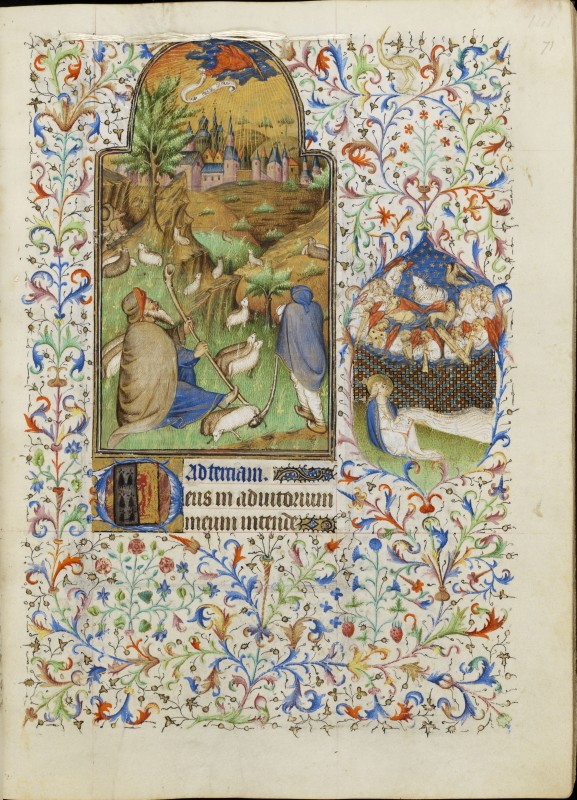 71
Ad terciam.
Deus in adiutorium
meum intende